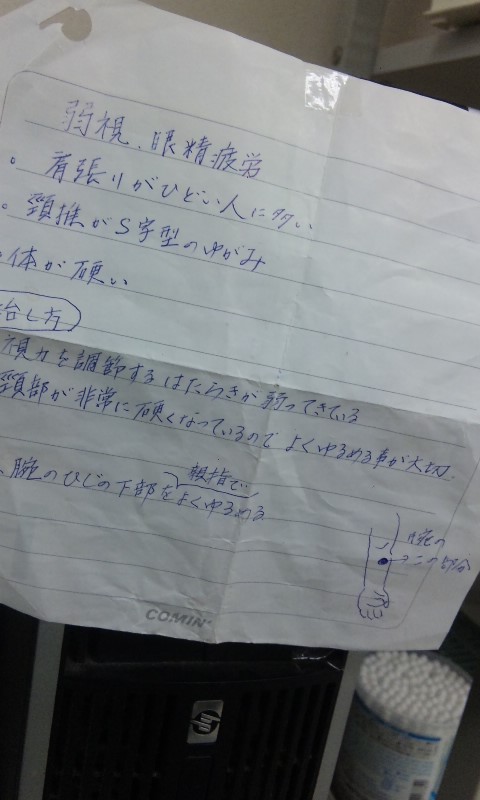 弱視、眼精疲労
・肩張りがひどい人に多い
・頸椎がS字型のゆがみ
・体が硬い
治し方
視力を調節するはたらきが弱ってきている
頸部が非常に硬くなっているのでよくゆるめる事が大切.
、腕のひじの下部を親指でよくゆるめる
腕の
この部分
COMIN'
hp